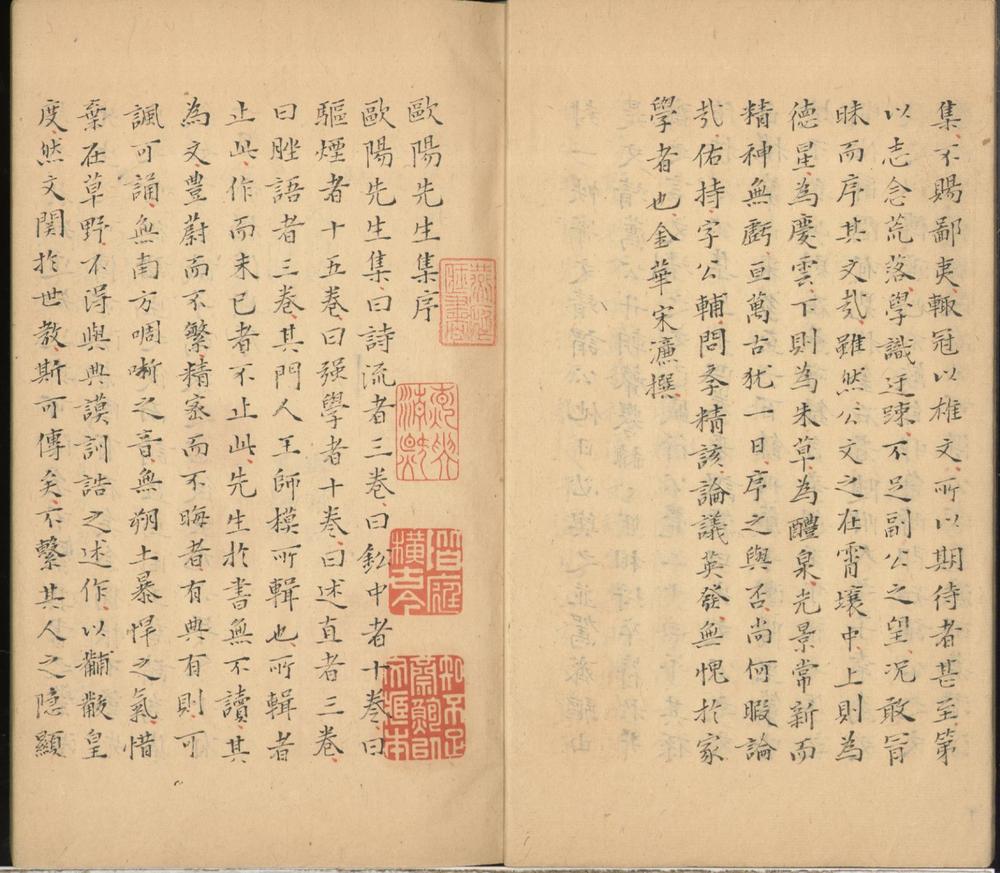 集不賜鄙夷輒冠以雄文所以期待者甚至第
以志念荒落學識迂踈不足副公之望况敢冒
昧而序其文㢤雖然公文之在霄壤中上則為
德星為慶雲下則為朱草為醴泉光景常新而
精神無虧亘萬古犹一日序之與否尚何暇論
㢤佑持字公輔問學精該論議英發無愧於家
學者也金華宋濂撰
歐陽先生集序
歐陽先生集曰詩流者三卷曰鈆中者十卷曰
驅煙者十五卷曰强學者十卷曰述直者三卷
曰脞語者三卷其門人王師模所輯也所輯者
止此作而未已者不止此先生於書無不讀其
為文豊蔚而不繁精宻而不晦者有典有則可
諷可誦無南方啁哳之音無朔土暴悍之氣惜
棄在草野不得與典謨訓誥之述作以黼黻皇
度然文関於世教斯可傳矣不繫其人之隐顯